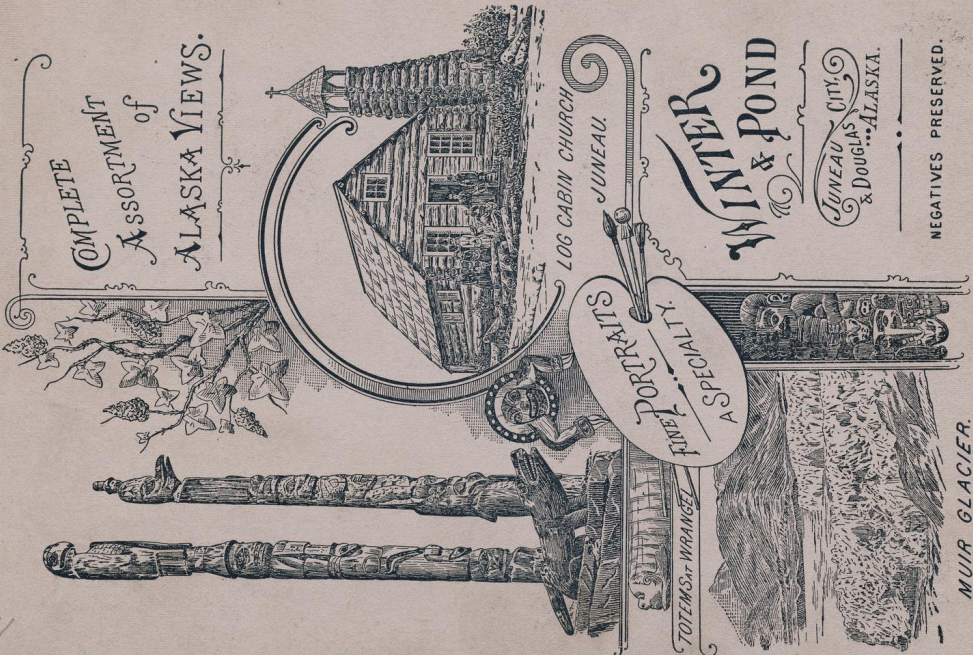 COMPLETE
ASSORTMENT
of
ALASKA VIEWS.
LOG CABIN CHURCH
JUNEAU.
FINE PORTRAITS
A SPECIALITY.
TOTEMS AT WRANGEL
WINTER
& POND
JUNEAU CITY,
& DOUGLAS
ALASKA.
NEGATIVES PRESERVED.
MUIR GLACIER.